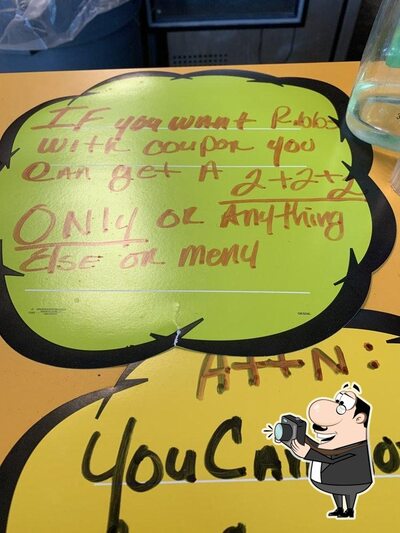 IF you want Ribs
with coupon you
Can get A 2+2+2
ONLY or Anything
Else on menu
Attn:
You Can